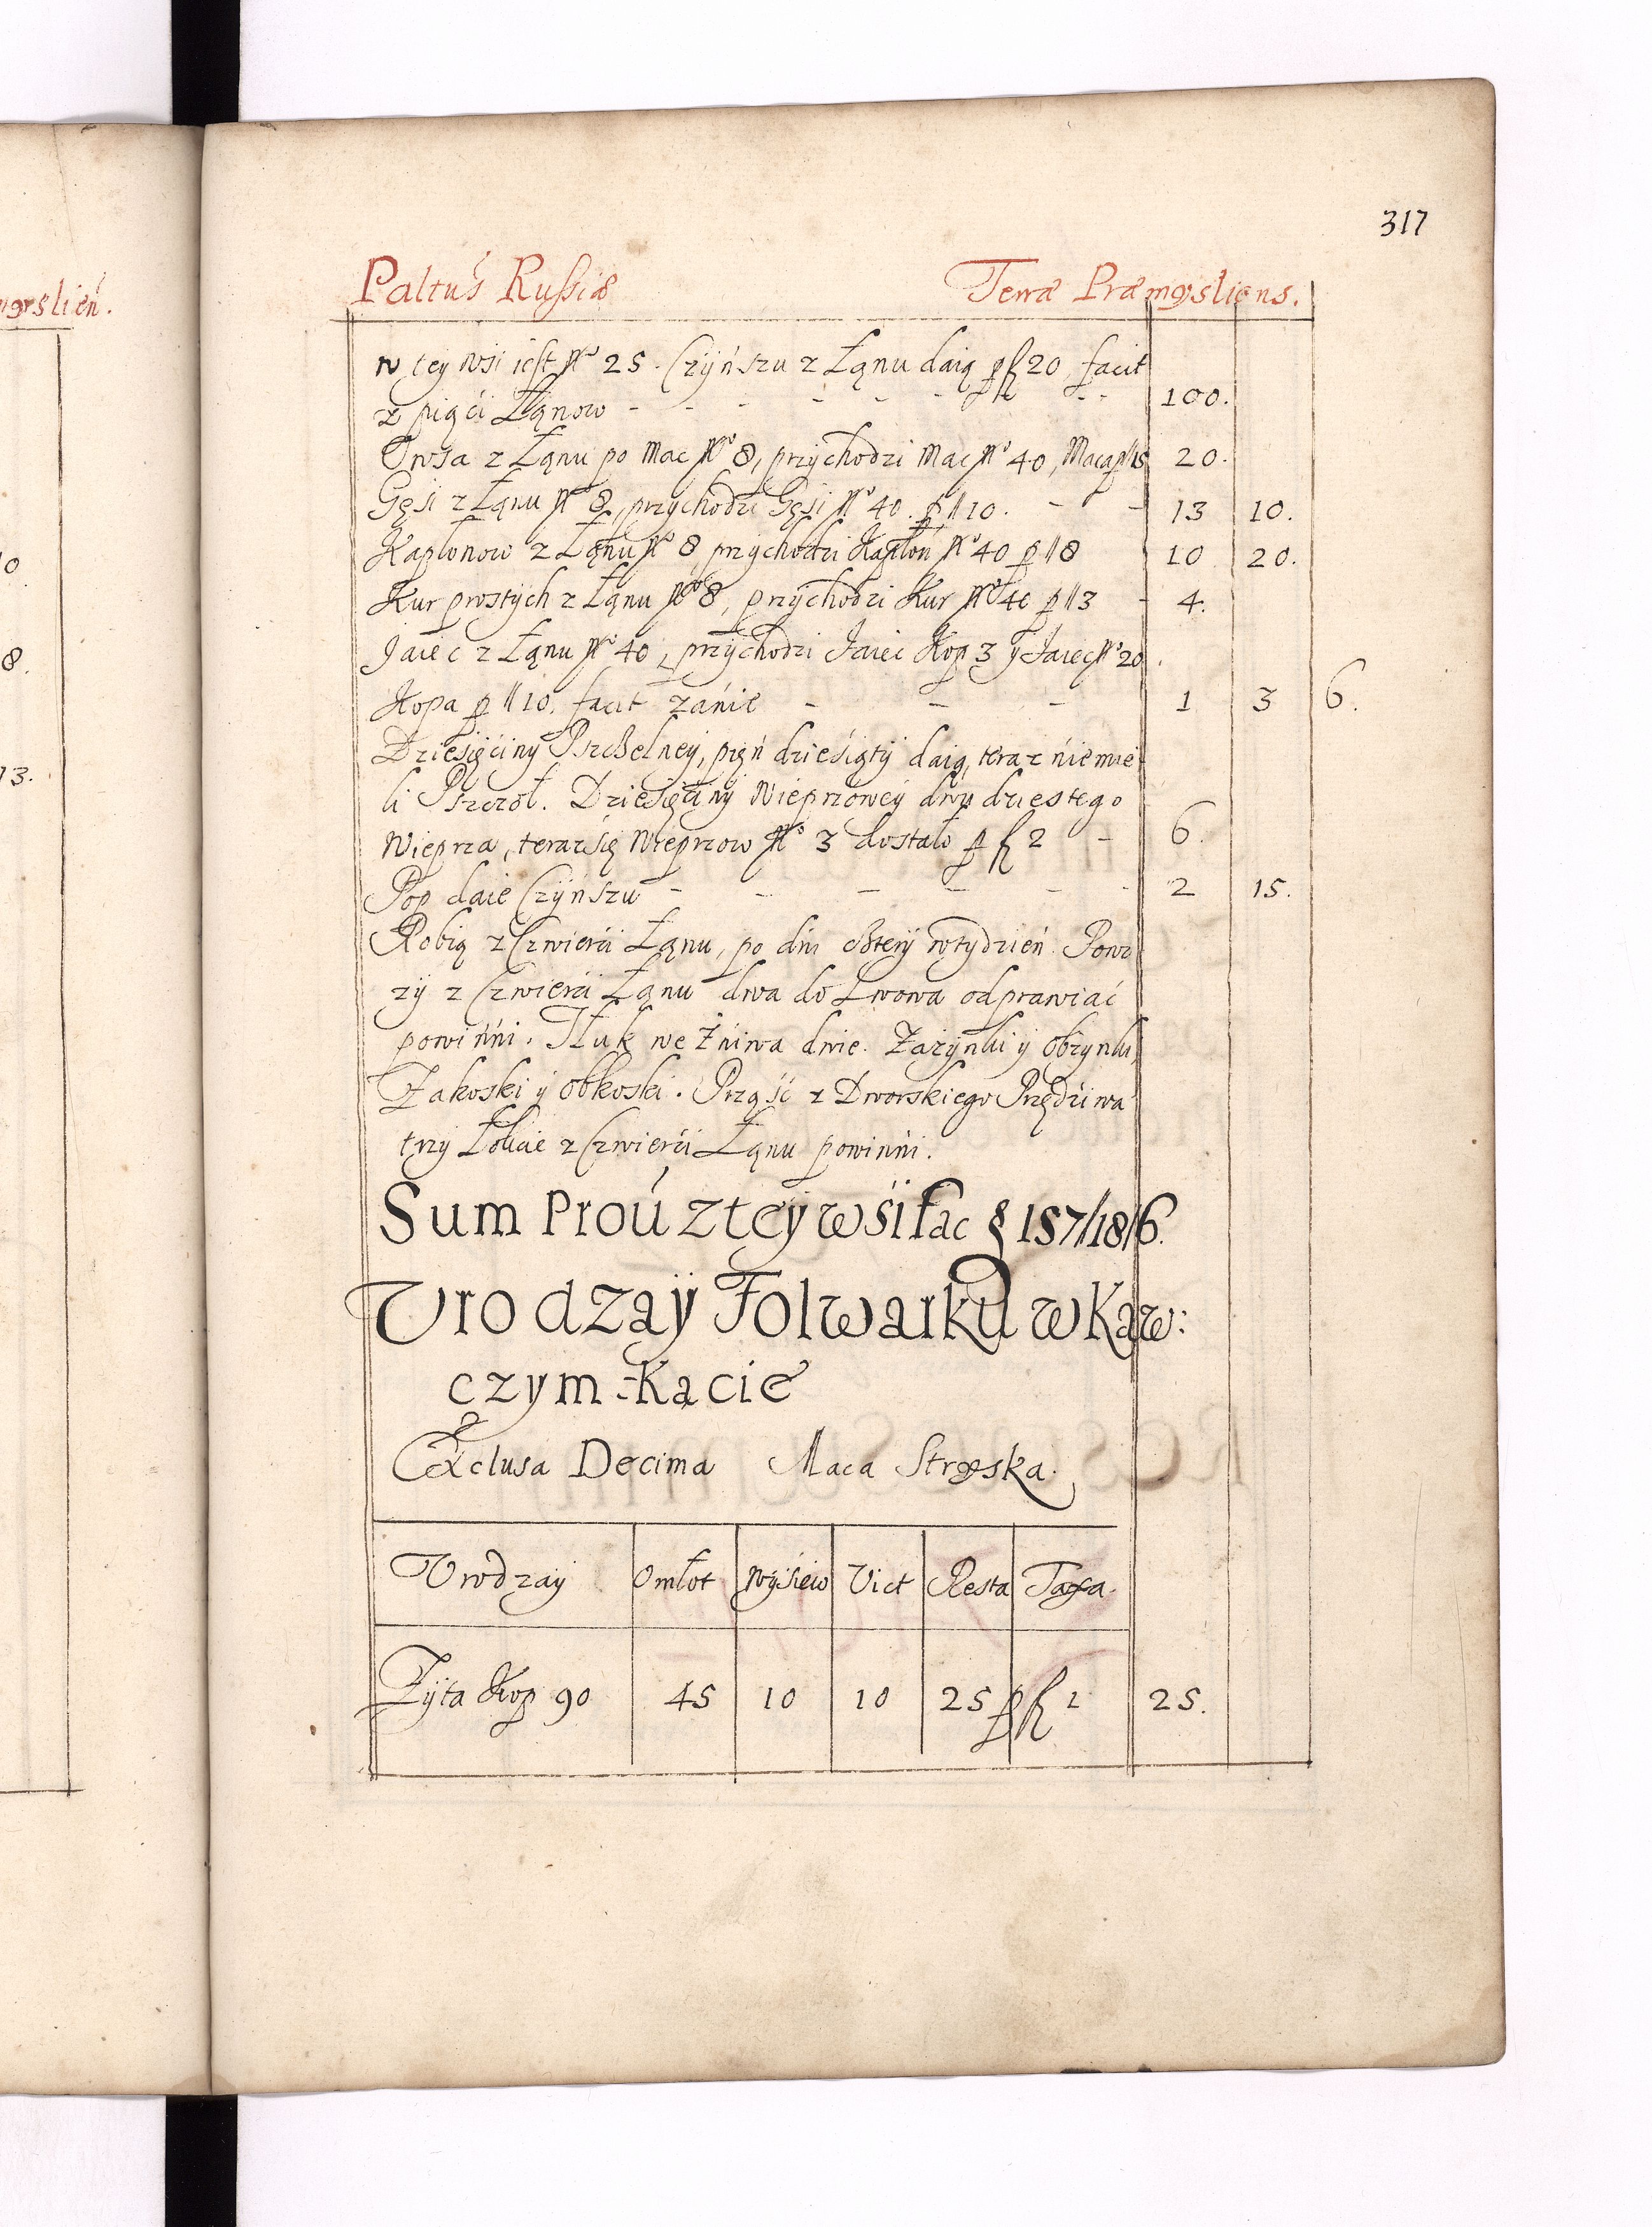 317
morslień.
Paltuś Russiæ Terræ Præmysliens.
w tey wsi iest Nº 25. Czÿńszu z Łąnu daią p fl 20, facit
z pięći Łąnow - - - - - - 100.
Owsa z Łąnu po Mac Nº 8, przychodzi Mac Nº 40, Maca p // 15 20.
Gęsi z Łąnu Nº 8, przychodzi Gęsi Nº 40. p // 10. - - 13 10.
Kapłonow z Łąnu Nº 8 przÿchodzi Kapłoń Nº 40 p // 8 10 20.
Kur prostÿch z Łąnu Nº 8, przÿchodzi Kur Nº 40 p // 3 - 4.
Jaiec z Łąnu Nº 40, przÿchodzi Jaiec Kop 3 ÿ Jaiec Nº 20.
Kopa p // 10. facit zańie - - - 1 3 6.
Dziesięćiny Pszczelney, pięń dziesiątÿ daią, teraz ńie mie
li Pszczoł. Dziesięćiny Wieprzowey dwudziestego
Wieprza, teraz się Wieprzow Nº 3 dostało p fl 2 - 6.
Pop daie Czÿńszu - - - - - - 2 15.
Robią z Czwierći Łąnu, po dńi cztery w tydzień. Powo
zÿ z Czwierći Łąnu dwa do Lwowa odprawiać
powińńi. Tłuk we Żńiwa dwie. Zażynki ÿ Obżynki,
Zakoski ÿ Obkoski. Prząść z Dworskiego Przędźiwa
trzÿ Łokcie z Czwierći Łąnu powińńi.
Sum Proú z tey wśi fac § 157/18/6.
Vrodzaÿ Folwarku w Kaw:
czym-Kącie
Exclusa Decima Maca Stryska.
Vrodzaÿ Omłot Wÿsiew Vict Resta Taxa.
Żÿta Kop 90 45 10 10 25 p fl 1 25.
0
8.
13.